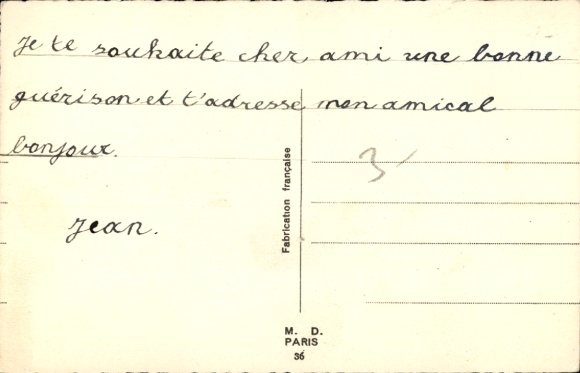 Je te souhaite cher ami une bonne
guérison et t'adresse mon amical
bonjour.
Jean.
3
Fabrication française
M. D.
PARIS
36